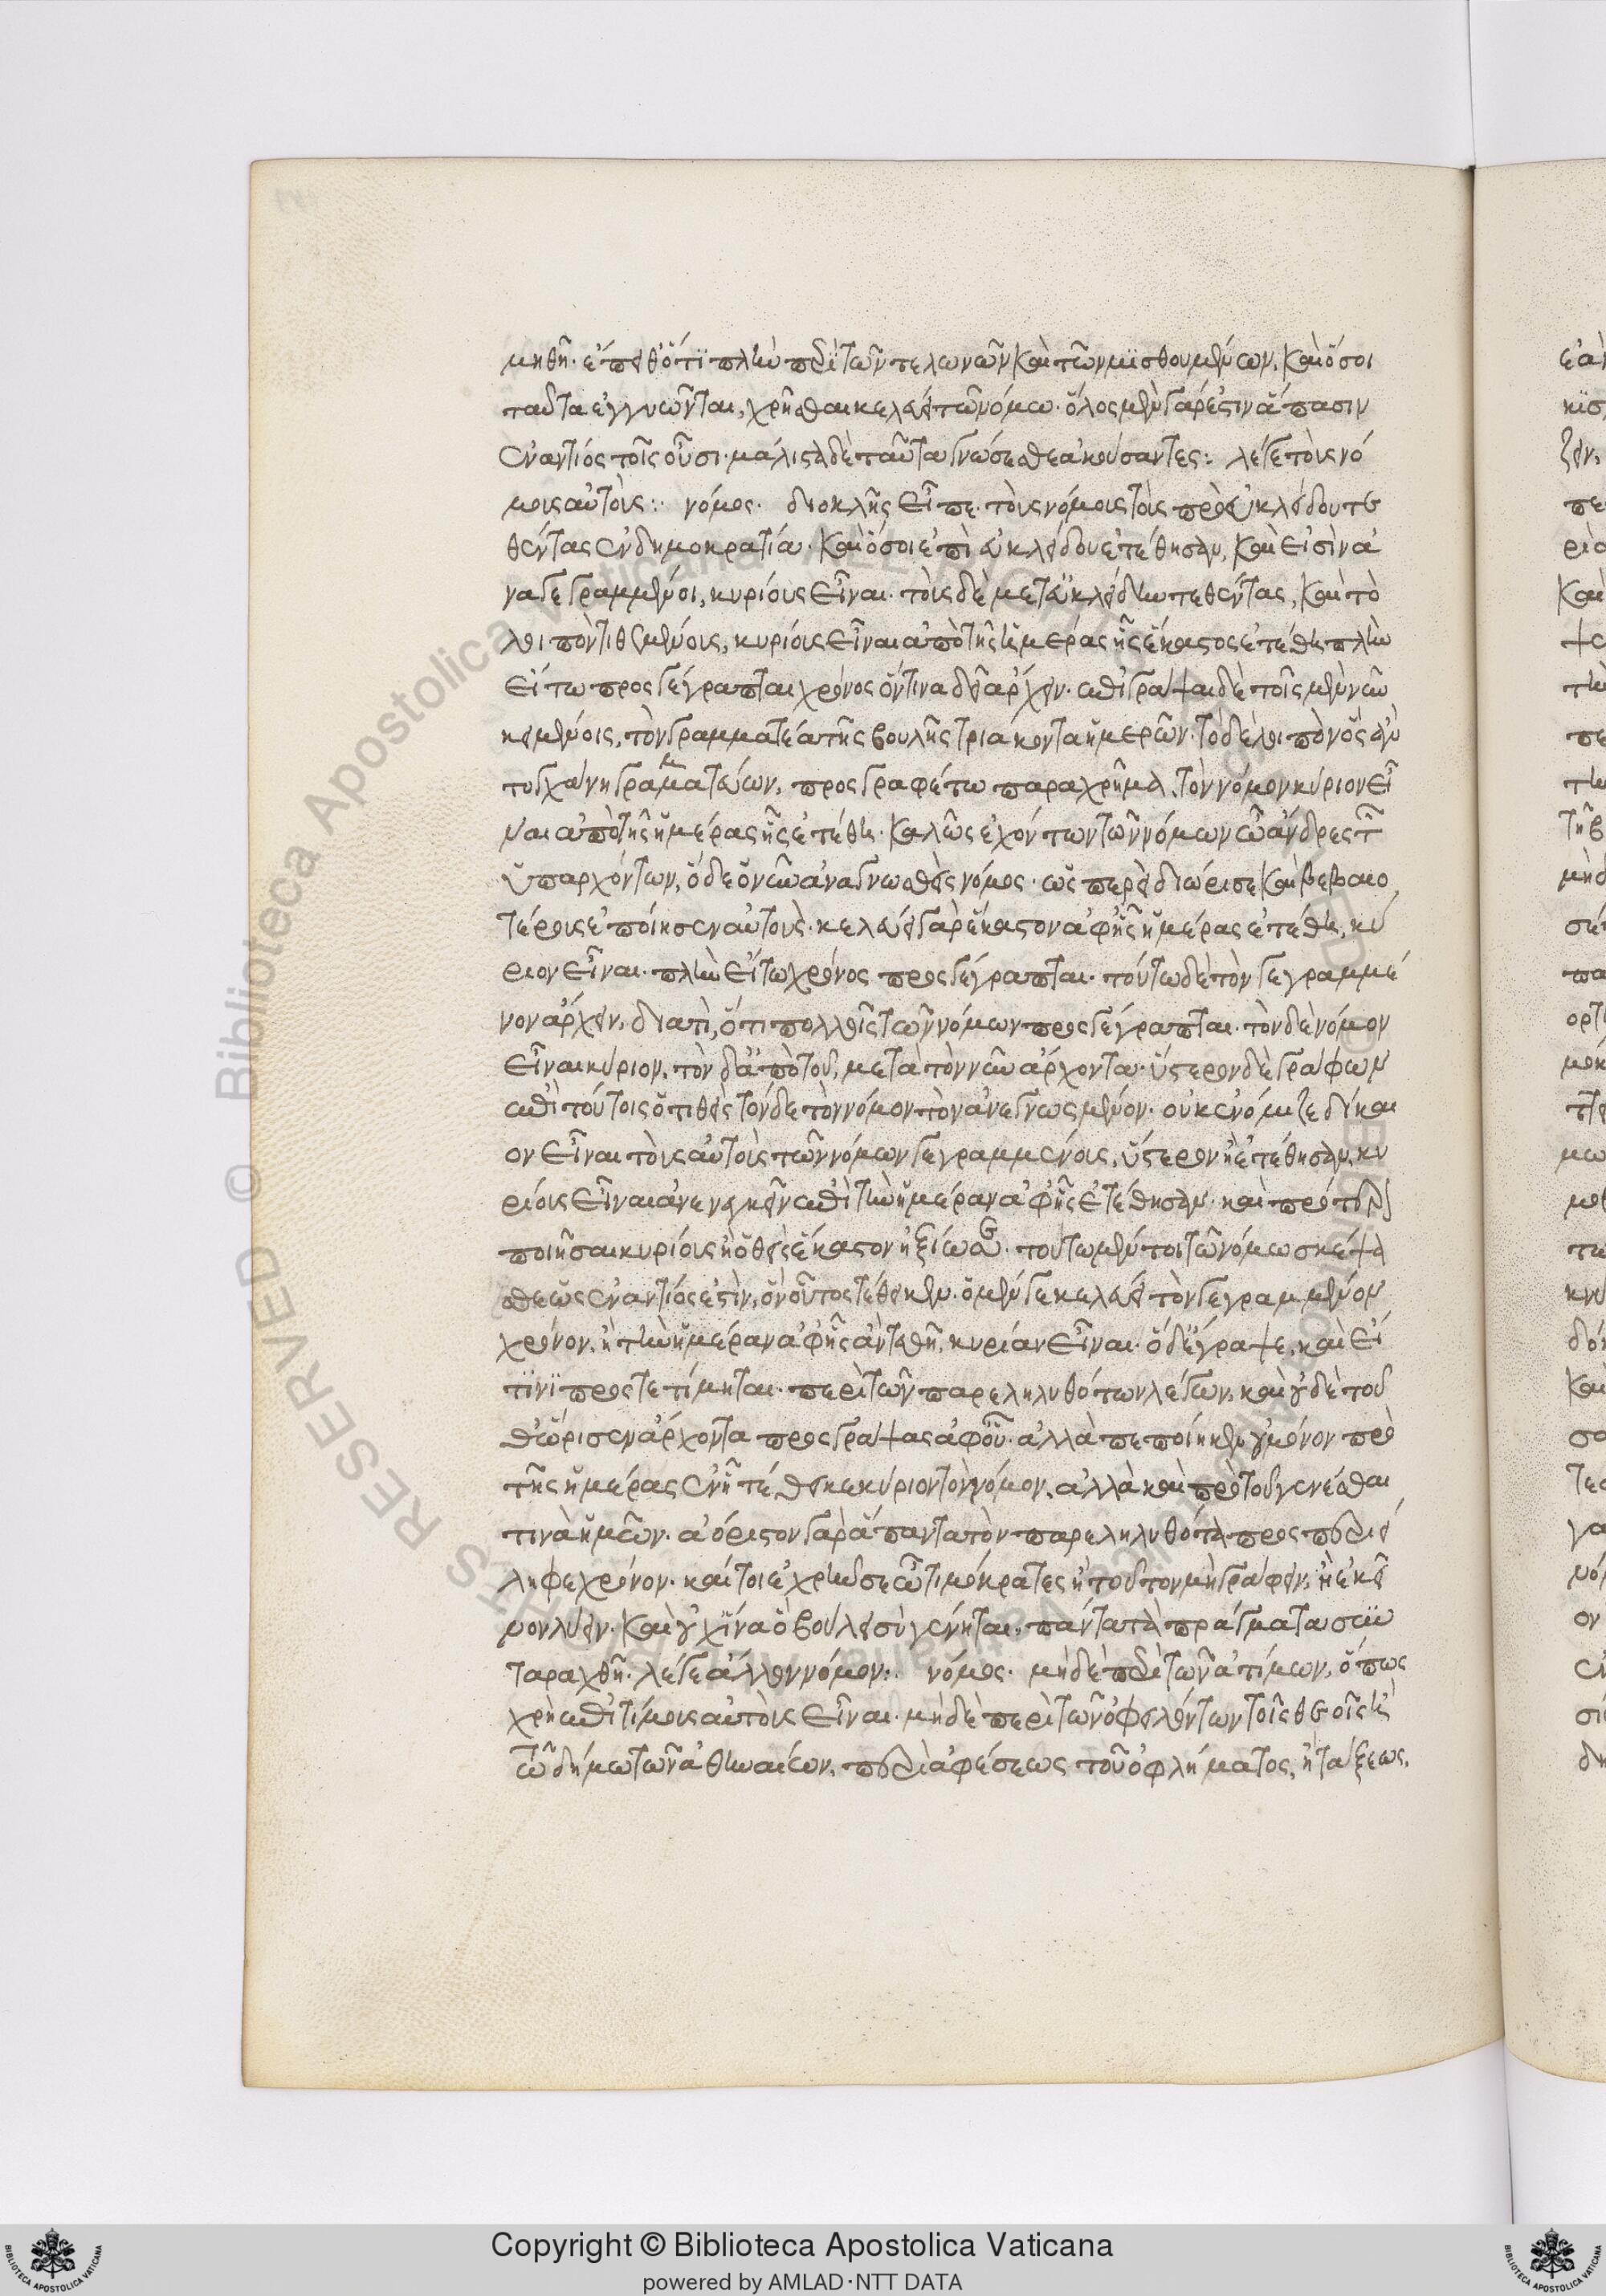 μηθῆ· ἐπειθ' ὅτι πλὴν περὶ τῶν τελωνῶν καὶ τῶν μισθουμένων, καὶ ὅσοι
ταῦτα ἐγγυῶνται, χρῆσθαι κελεύει τῶ νόμω· ὅλος μὲν γάρ ἐστιν ἅπασιν
ἐναντίος τοῖς οὖσι· μάλιστα δὲ ταῦτα γνώσεσθε ἀκούσαντες: λέγε τοὺς νό
μους αὐτοὺς: νόμος· διοκλῆς εἶπε· τοὺς νόμους τοὺς πρὸ εὐκλείδου τε
θέντας ἐν δημοκρατία· καὶ ὅσοι ἐπὶ εὐκλείδου ἐτέθησαν, καὶ εἰσὶν ἀ
ναγεγραμμένοι, κυρίους εἶναι· τοὺς δὲ μετ' εὐκλείδην τεθέντας, καὶ τὸ
λοιπὸν τιθεμένους, κυρίους εἶναι ἀπὸ τῆς ἡμέρας ἧς ἕκαστος ἐτέθη πλὴν
εἴ τω προσγέγραπται χρόνος ὅντινα δεῖ ἄρχειν· ἐπιγράψαι δὲ τοῖς μὲν νῦν
κειμένοις, τὸν γραμματέα τῆς βουλῆς τριάκοντα ἡμερῶν· τὸ δὲ λοιπὸν ὃς ἂν
τυγχάνη γραμματεύων, προσγραφέτω παραχρῆμα, τὸν νόμον κύριον εἶ
ναι ἀπὸ τῆς ἡμέρας ἧς ἐτέθη· καλῶς ἐχόντων τῶν νόμων ὦ ἄνδρες τῶν
ὑπαρχόντων, ὅδε ὃν νῦν ἀναγνωσθεὶς νόμος· ὥσπερεὶ διώρισε καὶ βεβαιο
τέρους ἐποίησεν αὐτοὺς· κελεύει γὰρ ἕκαστον ἀφ' ἧς ἡμέρας ἐτέθη, κύ
ριον εἶναι· πλὴν εἴ τω χρόνος προσγέγραπται· τούτω δὲ τὸν γεγραμμέ
νον ἄρχειν, διατὶ, ὅτι πολλοῖς τῶν νόμων προσγέγραπται· τὸν δὲ νόμον
εἶναι κύριον, τὸν δ' ἀπὸ τοῦ, μετὰ τὸν νῦν ἄρχοντα· ὕστερον δὲ γράφων
ἐπὶ τούτοις ὁ τιθεὶς τόνδε τὸν νόμον τὸν ἀνεγνωσμένον· οὐκ ἐνόμιζε δίκαι
ον εἶναι τοὺς αὐτοὺς τῶν νόμων γεγραμμένους, ὕστερον ἢ ἐτέθησαν, κυ
ρίους εἶναι ἀνενεγκεῖν ἐπὶ τὴν ἡμέραν ἀφ' ἧς ἐτέθησαν· καὶ πρὸ τοῦ
ποιῆσαι κυρίους ἢ ὁ θεὶς ἕκαστον ἠξίωσε· τούτω μέν τοι τῶ νόμω σκέψα
σθε ὡς ἐναντίος ἐστὶν, ὃν οὗτος τέθεικεν· ὁ μέν γε κελεύει τὸν γεγραμμένον
χρόνον, ἢ τὴν ἡμέραν ἀφ' ἧς ἂν τεθῆ, κυρίαν εἶναι· ὁ δ' ἔγραψε, καὶ εἴ
τινι προστετίμηται· περὶ τῶν παρεληλυθότων λέγων, καὶ οὐδὲ τοῦ
θ' ὥρισεν ἄρχοντα προσγράψας ἀφ' οὗ· ἀλλὰ πεποίηκεν οὐ μόνον πρὸ
τῆς ἡμέρας ἐν ἧ τέθεικε κύριον τὸν νόμον, ἀλλὰ καὶ πρὸ τοῦ γενέσθαι
τινὰ ἡμῶν· ἀόριστον γὰρ ἅπαντα τὸν παρεληλυθότα προσπεριεί
ληφε χρόνον· καίτοι ἐχρῆν σε ὦ τιμόκρατες ἢ τοῦτον μὴ γράφειν, ἢ ἐκεῖ
νον λύειν· καὶ οὐχ ἵνα ὃ βούλει σὺ γένηται, πάντα τὰ πράγματα συν
ταραχθῆ· λέγε ἄλλον νόμον: νόμος· μὴ δὲ περὶ τῶν ἀτίμων, ὅπως
χρὴ ἐπιτίμους αὐτοὺς εἶναι· μὴ δὲ περὶ τῶν ὀφειλόντων τοῖς θεοῖς ἢ
τῶ δήμω τῶν ἀθηναίων, περὶ ἀφέσεως τοῦ ὀφλήματος, ἢ τάξεως,
Copyright © Biblioteca Apostolica Vaticana
powered by AMLAD·NTT DATA